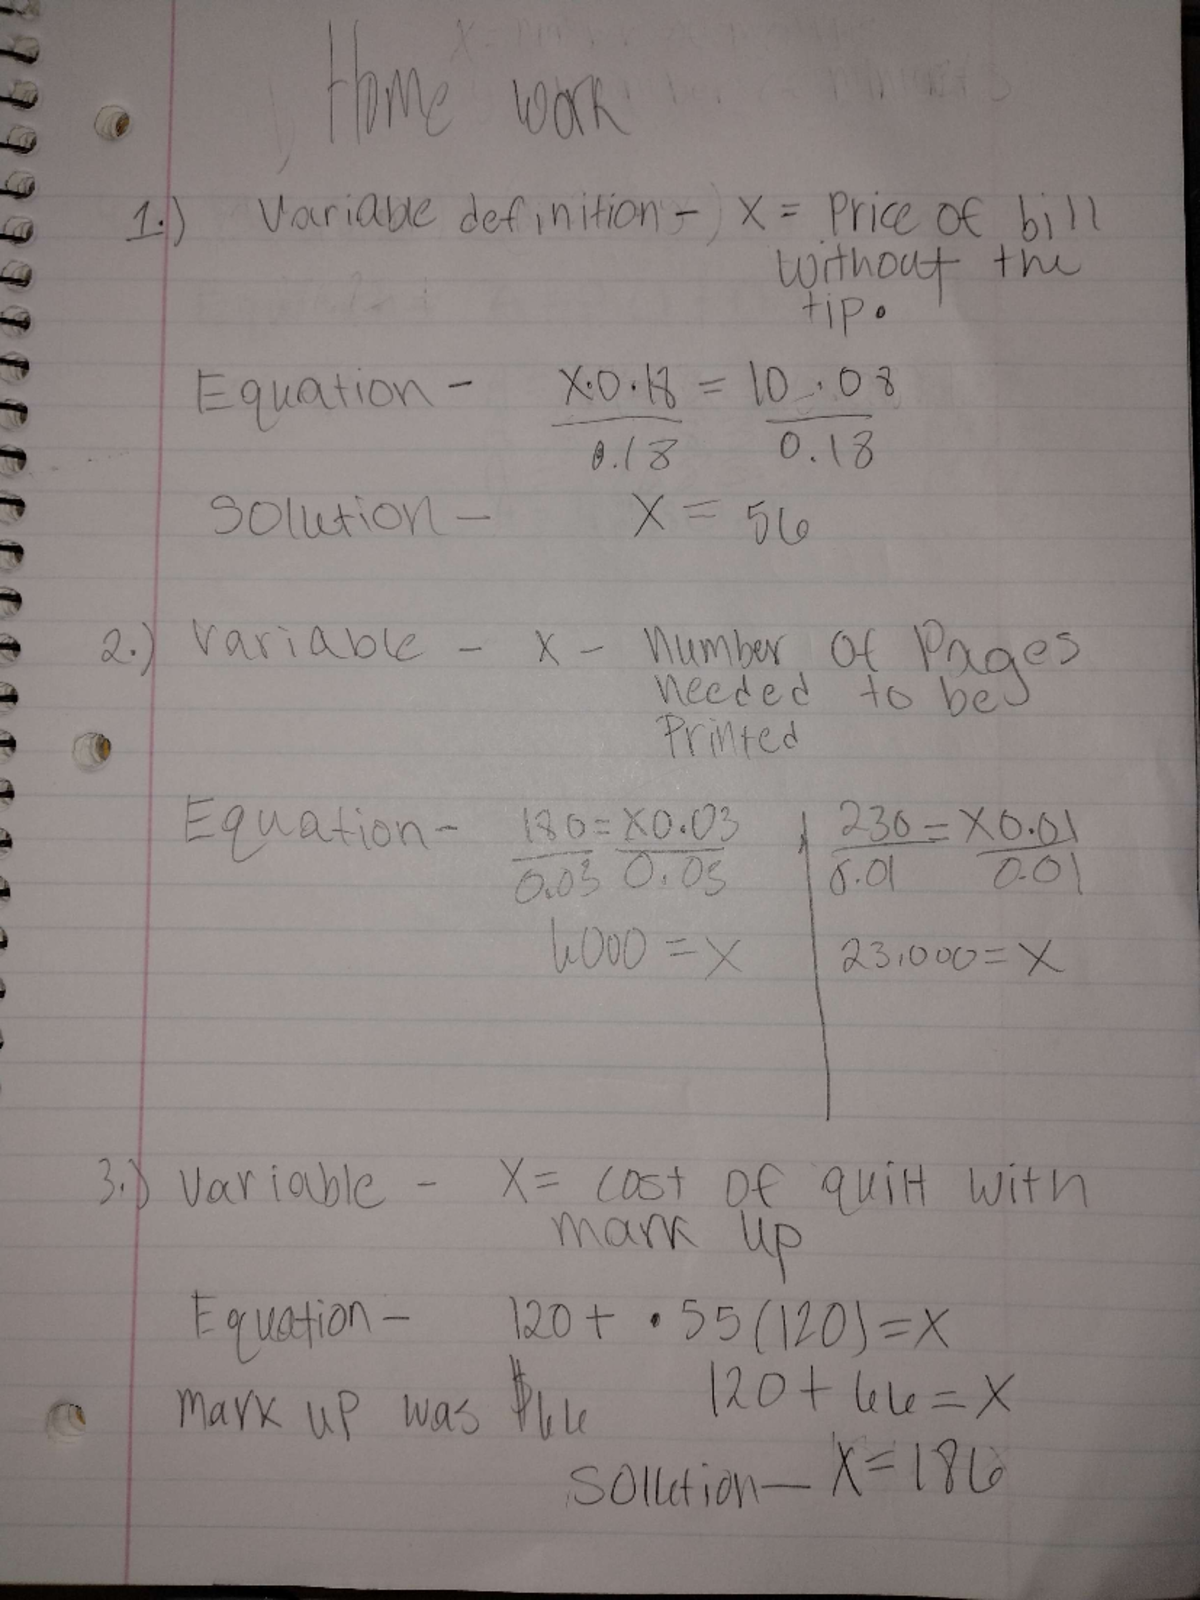 Home work
1.) Variable definition - X = Price of bill
without the
tip.
Equation - X·0.18 = 10.08
0.18 0.18
Solution - X = 56
2.) Variable - X - Number of Pages
needed to be
Printed
Equation - 180 = X0.03 230 = X0.01
0.03 0.03 0.01 0.01
6000 = X 23,000 = X
3.) Variable - X = cost of quilt with
mark up
Equation - 120 + .55(120) = X
mark up was $66 120 + 66 = X
Solution - X = 186